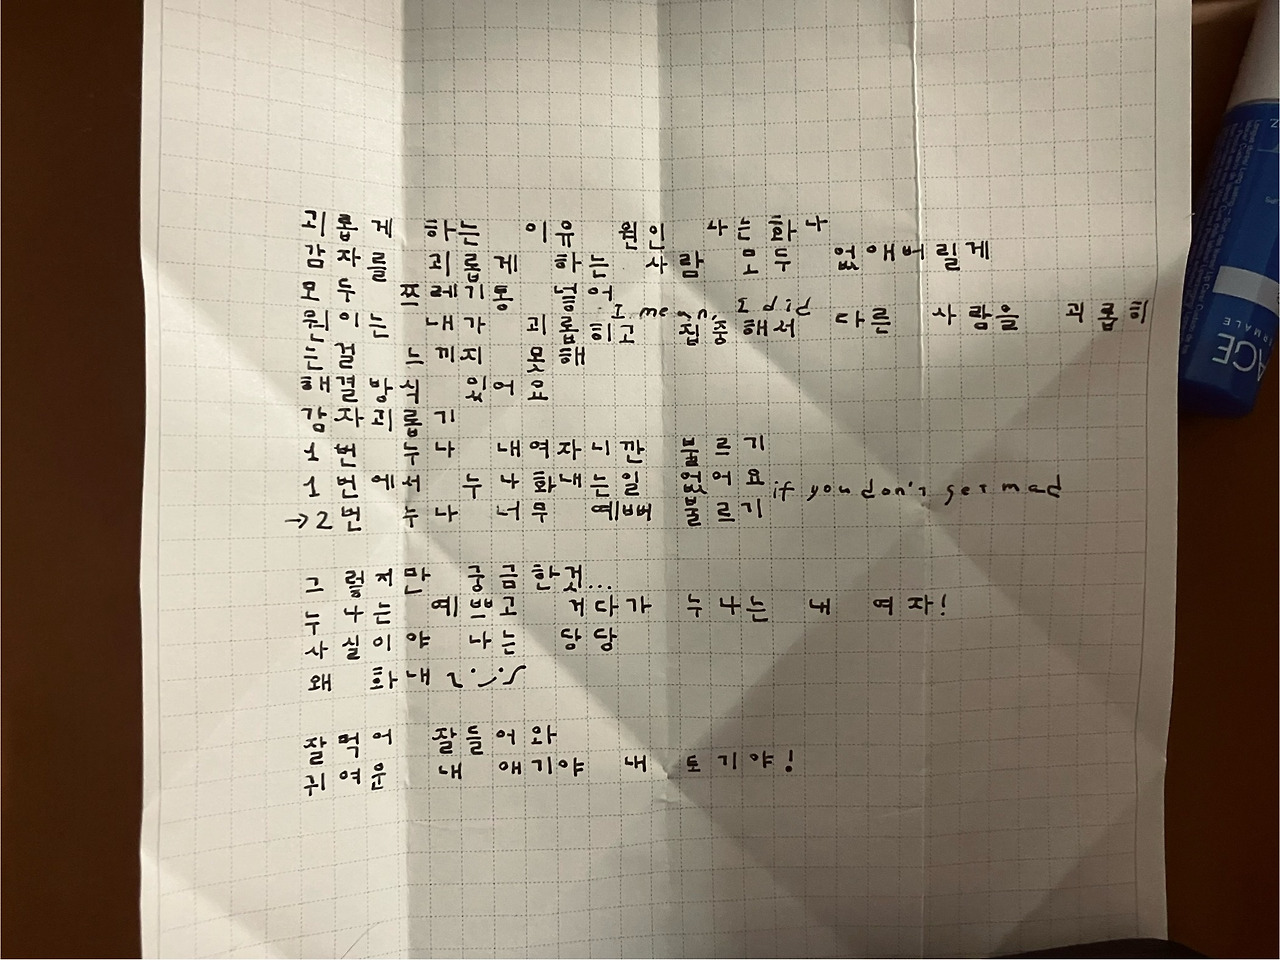 괴롭게 하는 이유 원인 사는화나
감자를 괴롭게 하는 사람 모두 없애버릴게
모두 쯔레기통 넣어
I mean, I did
원이는 내가 괴롭히고 집중해서 다른 사람을 괴롭히
는걸 느끼지 못해
해결방식 있어요
감자괴롭기
1번 누나 내여자니깐 불르기
1번에서 누나화내는일 없어요 if you don't get mad
→2번 누나 너무 예뻐 불르기
그렇저만 궁금한것...
누나는 예쁘고 거다가 누나는 내 여자!
사실이야 나는 당당
왜 화내
잘먹어 잘들어와
귀여운 내 애기야 내 토기야!
ACE